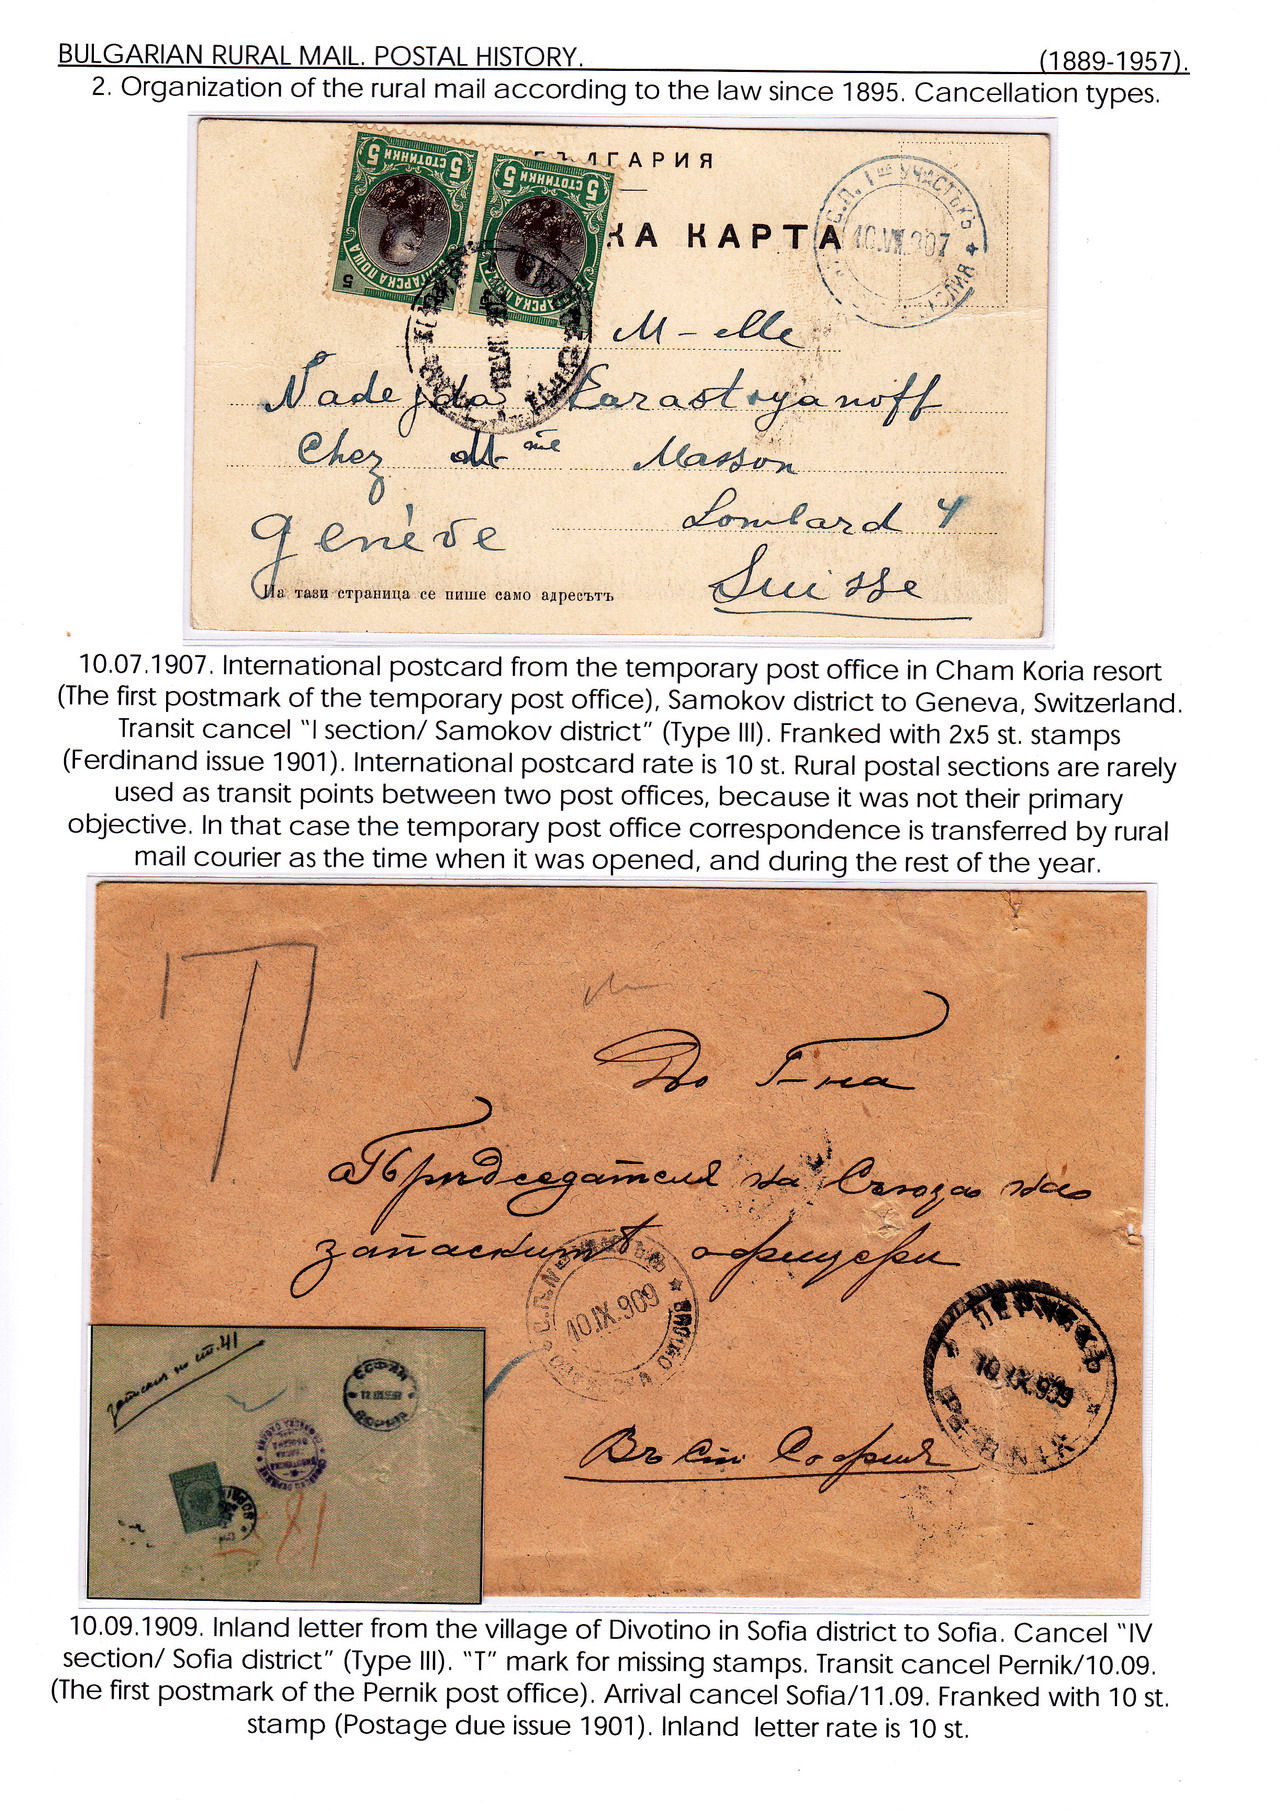 BULGARIAN RURAL MAIL. POSTAL HISTORY. (1889-1957).
2. Organization of the rural mail according to the law since 1895. Cancellation types.
5 СТОТИНКИ 5
5 СТОТИНКИ 5
БЪЛГАРИЯ
КА КАРТА
10.VII.907
M-elle
Nadejda Karastoyanoff
Chez Mme Masson
Lombard 4
Genève
Suisse
На тази страница се пише само адресътъ
10.07.1907. International postcard from the temporary post office in Cham Koria resort
(The first postmark of the temporary post office), Samokov district to Geneva, Switzerland.
Transit cancel “I section/ Samokov district” (Type III). Franked with 2x5 st. stamps
(Ferdinand issue 1901). International postcard rate is 10 st. Rural postal sections are rarely
used as transit points between two post offices, because it was not their primary
objective. In that case the temporary post office correspondence is transferred by rural
mail courier as the time when it was opened, and during the rest of the year.
Т
До Г-на
Председателя на Съюза на
запаскитѣ офицери
10.IX.909
ПЕРНИКЪ
10.IX.909
Въ
София
СОФИЯ
81
10.09.1909. Inland letter from the village of Divotino in Sofia district to Sofia. Cancel “IV
section/ Sofia district” (Type III). “T” mark for missing stamps. Transit cancel Pernik/10.09.
(The first postmark of the Pernik post office). Arrival cancel Sofia/11.09. Franked with 10 st.
stamp (Postage due issue 1901). Inland letter rate is 10 st.